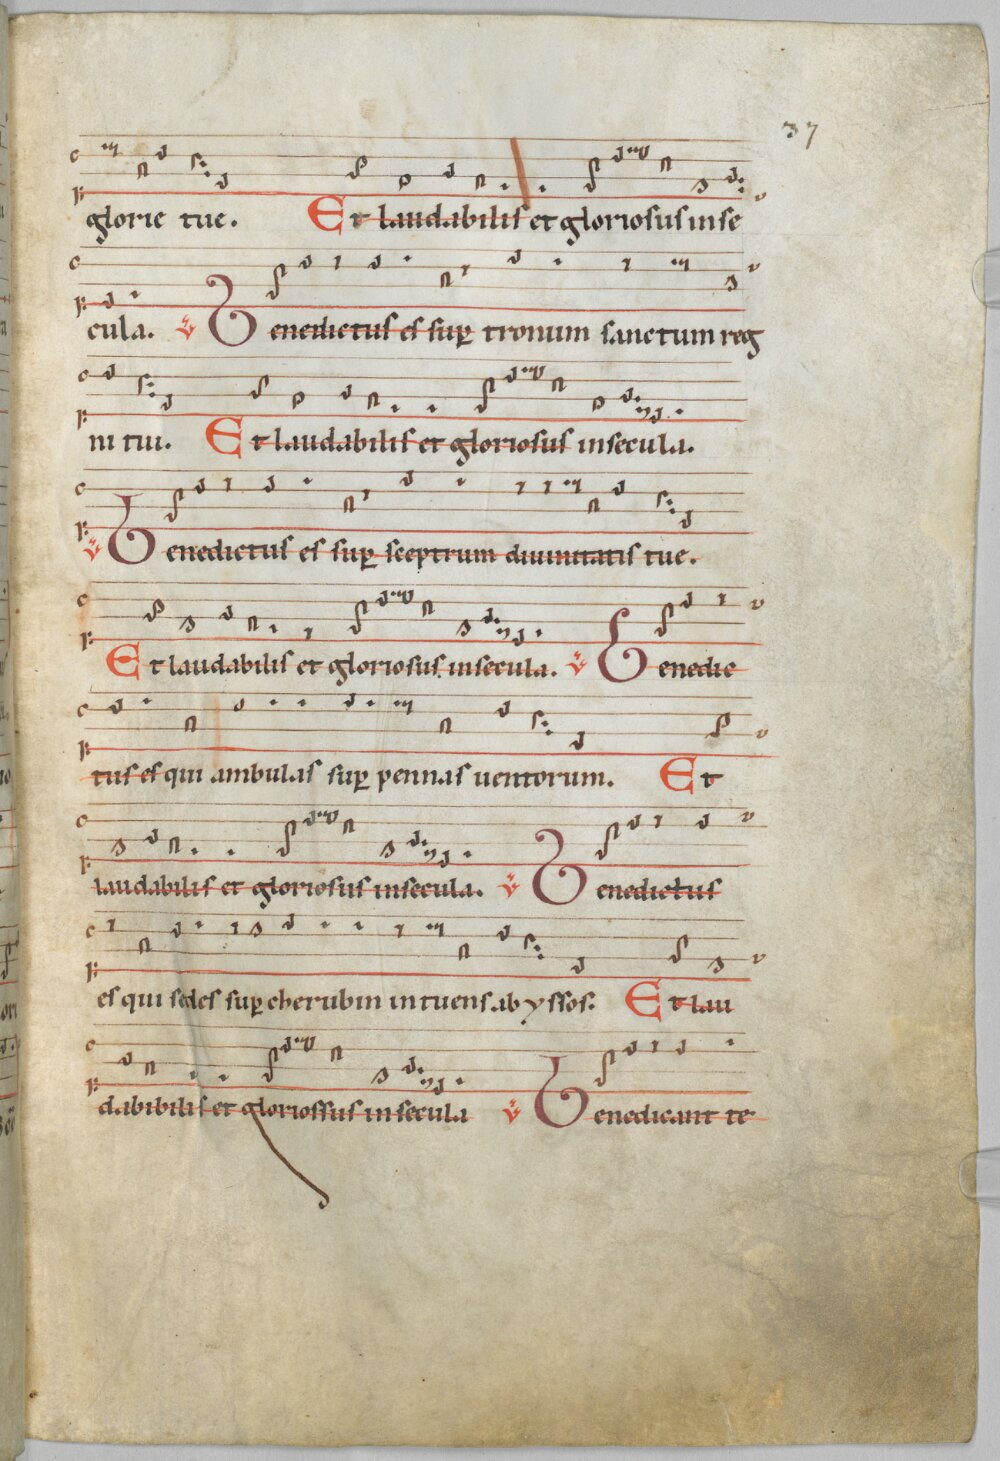 37
glorie tue. Et laudabilis et gloriosus in se
cula. Benedictus es sup tronum sanctum reg
ni tui. Et laudabilis et gloriosus in secula.
Benedictus es sup sceptrum diuinitatis tue.
Et laudabilis et gloriosus in secula. Benedic
tus es qui ambulas sup pennas uentorum. Et
laudabilis et gloriosus in secula. Benedictus
es qui sedes sup cherubin intuens abyssos. Et lau
dabibilis et gloriossus in secula Benedicant te